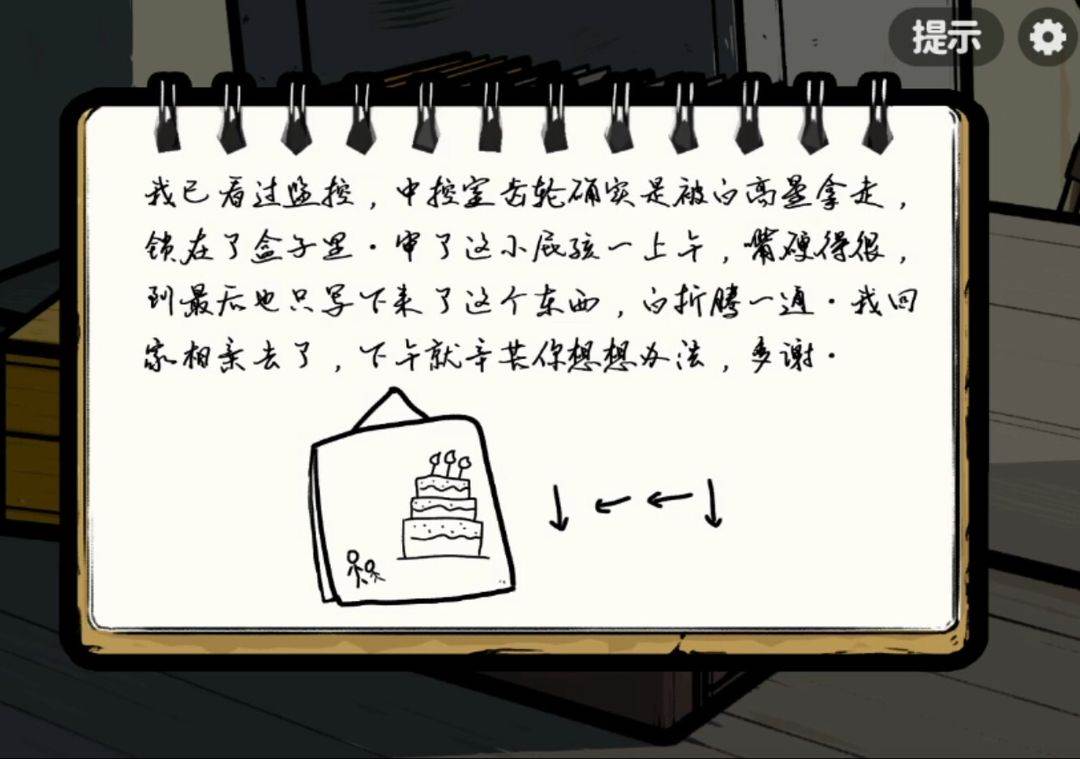 提示
我已看过监控，中控室齿轮确实是被白高星拿走，
锁在了盒子里。审了这小屁孩一上午，嘴硬得很，
到最后也只写下来了这个东西，白折腾一通。我回
家相亲去了，下午就辛苦你想想办法，多谢。
↓←←↓